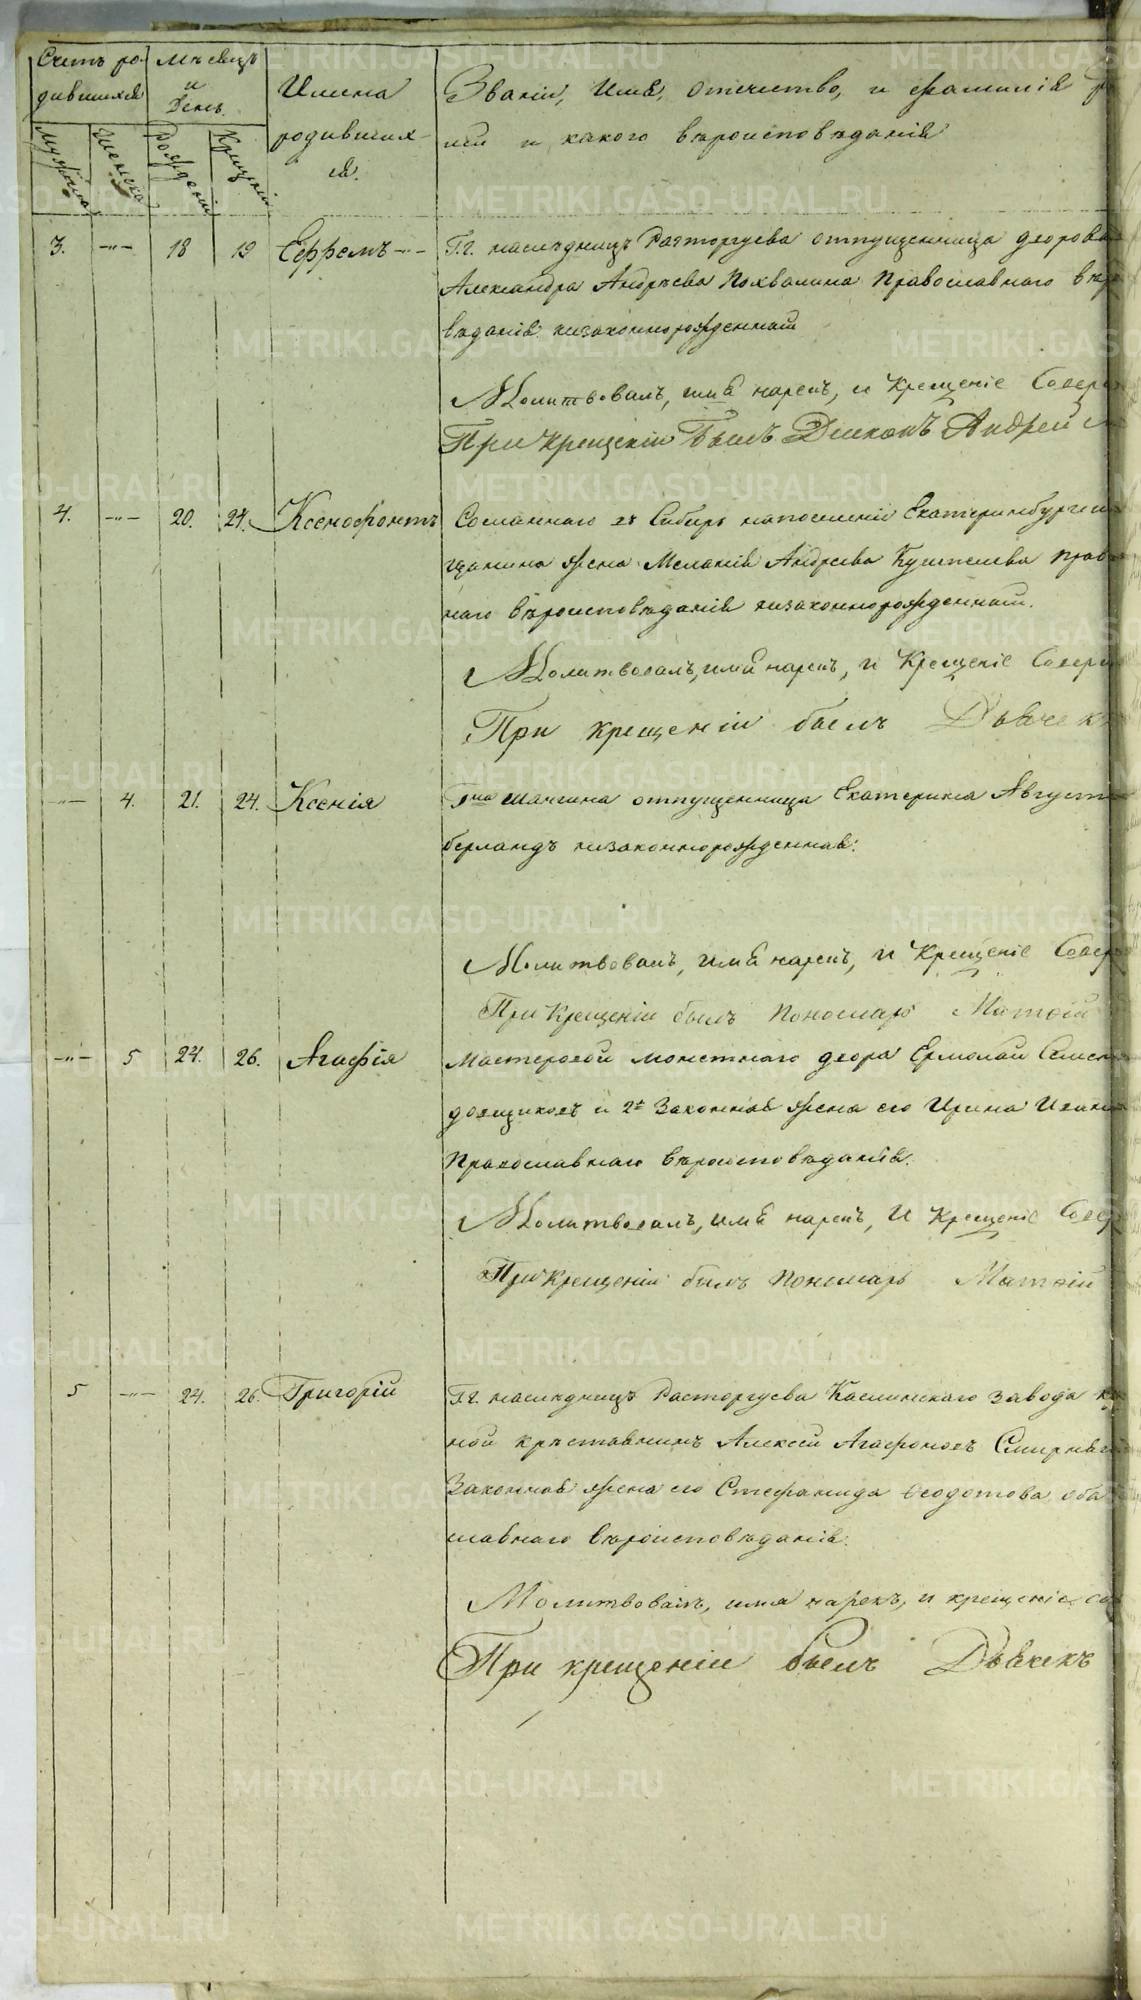 Счетъ ро-
дившихся
Мѣсяцъ
и
день.
Имена
родивших-
ся.
Званіе, Имя, отечество, и фамилія
и какого вѣроисповѣданія
Мужеска
Женска
Рожденія
Крещенія
3. —"— 18 19 Ефремъ
Г.г. наслѣдницъ Расторгуева отпущенница дворова
Александра Андрѣева Похвалина Православнаго вѣро
вѣданія незаконнорожденный
Молитвовалъ, имя нарекъ, и Крещеніе Совер
При Крещеніи былъ Діяконъ Андрей
4. —"— 20. 24. Ксенофонтъ
Сосланнаго въ Сибирь на поселеніе Екатеринбургск
щанина жена Меланія Андрѣева прав
наго вѣроисповѣданія незаконнорожденный.
Молитвовалъ, имя нарекъ, и Крещеніе Совер
При крещеніи былъ Дьячекъ
—"— 4. 21. 24. Ксенія
отпущенница Екатерина Август
берландъ незаконнорожденная:
Молитвовалъ, имя нарекъ, и Крещеніе Совер
При Крещеніи былъ Пономарь Матѳій
—"— 5 24. 26. Агафія
Мастеровой монетнаго двора Ермолай Семен
довщиковъ и 2я Законная жена его Ирина Иван
Православнаго вѣроисповѣданія.
Молитвовалъ, имя нарекъ, и Крещеніе Совер
При Крещеніи былъ Пономарь Матѳій
5 —"— 24. 26. Григорій
Г.г. наслѣдницъ Расторгуева Каслинскаго завода
ной крестьянинъ Алексѣй Агафоновъ Смирняг
Законная жена его Стефанида Ѳеодотова оба
славнаго вѣроисповѣданія.
Молитвовалъ, имя нарекъ, и крещеніе со
При крещеніи былъ Дьячекъ
METRIKI.GASO-URAL.RU